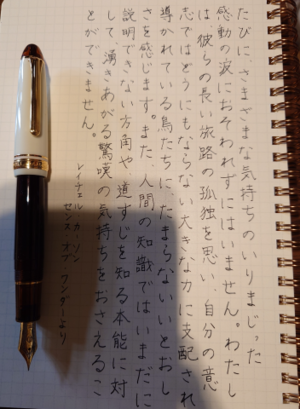 たびに、さまざまな気持ちのいりまじった
感動の波におそわれずにはいません。わたし
は彼らの長い旅路の孤独を思い、自分の意
志ではどうにもならない大きな力に支配され
導かれている鳥たちに、たまらないいとおし
さを感じます。また、人間の知識ではいまだに
説明できない方角や道すじを知る本能に対
して、湧きあがる驚嘆の気持ちをおさえるこ
とができません。
レイチェル・カーソン
センス・オブ・ワンダーより